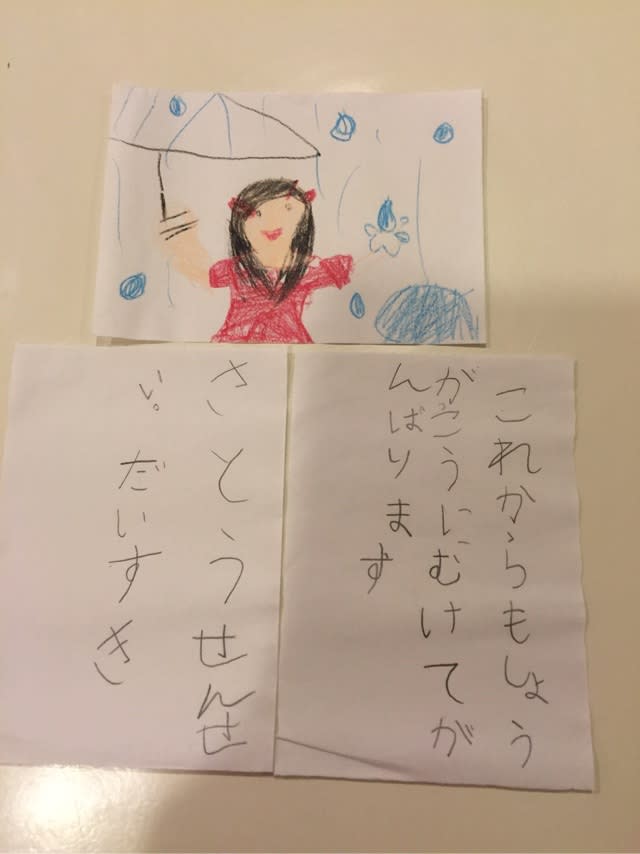 これからもしょう
がっこうにむけてが
んばります
さとうせんせ
い。だいすき